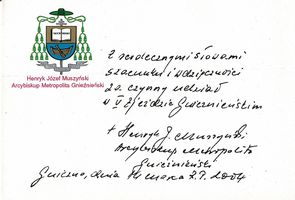 Henryk Józef Muszyński
Arcybiskup Metropolita Gnieźnieński
Z serdecznymi słowami
szacunku i wdzięczności
za czynny udział
w V Zjeździe Gnieźnieńskim
+ Henryk J. Muszyński
Arcybiskup Metropolita
Gnieźnieński
Gniezno, dnia marca 2004